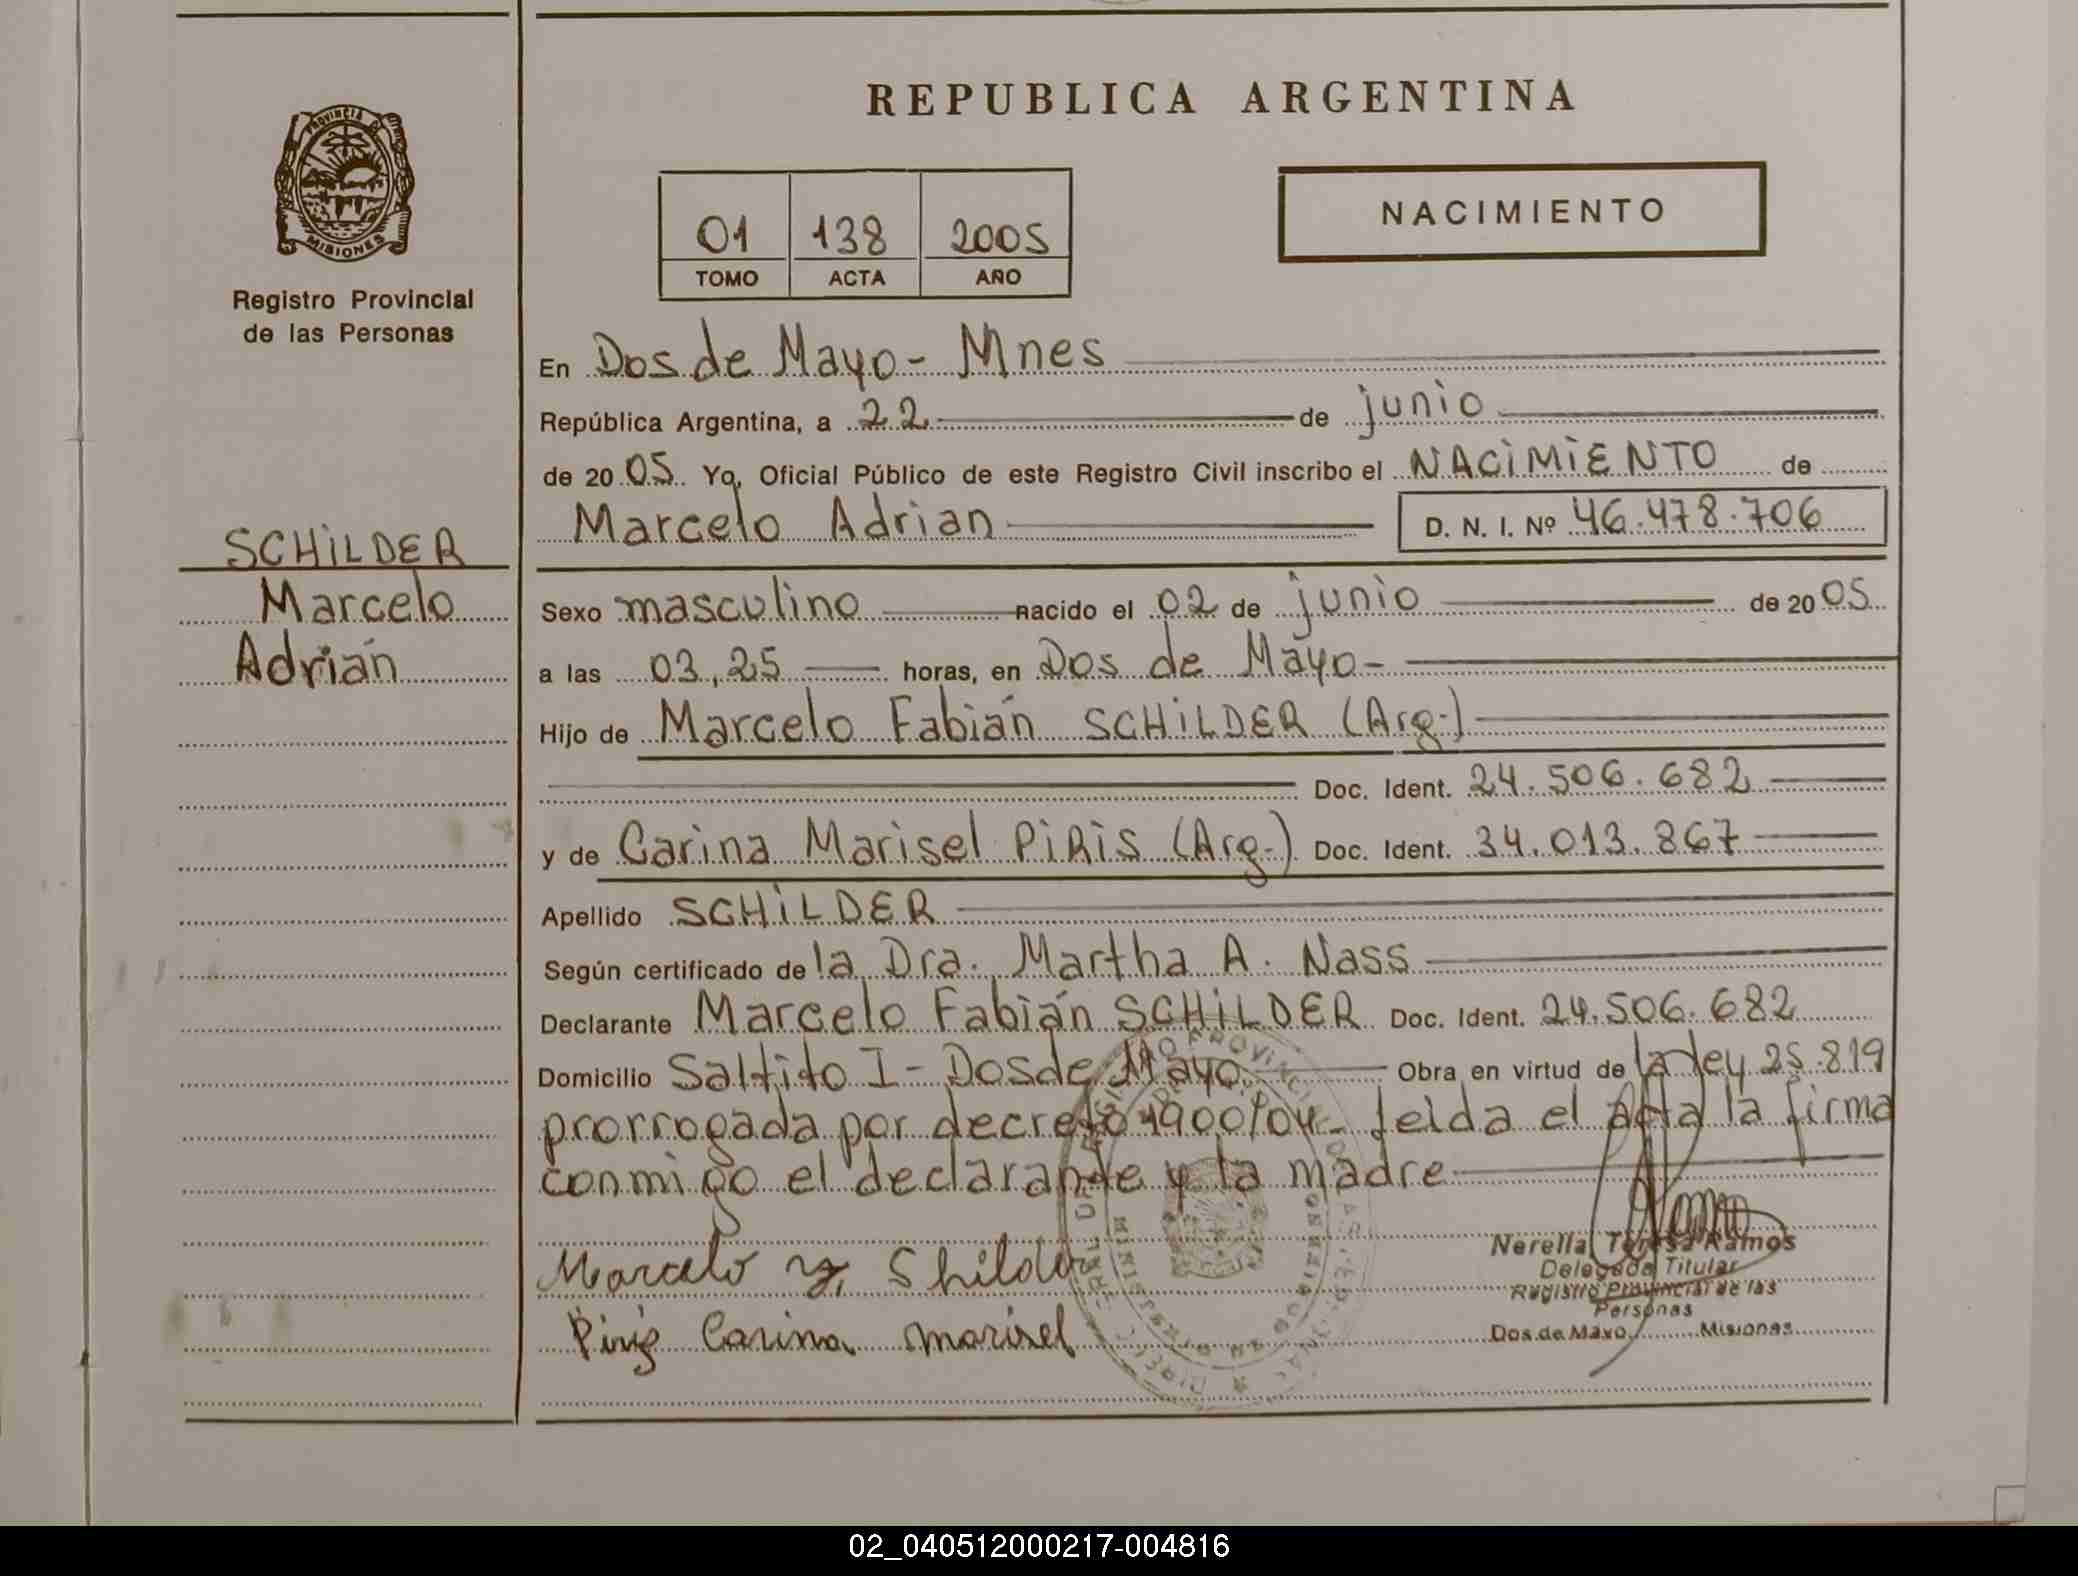 REPUBLICA ARGENTINA
PROVINCIA DE
MISIONES
Registro Provincial
de las Personas
01 138 2005
TOMO ACTA AÑO
NACIMIENTO
En Dos de Mayo - Mnes
República Argentina, a 22 de junio
de 2005. Yo, Oficial Público de este Registro Civil inscribo el NACIMIENTO de
Marcelo Adrian D. N. I. Nº 46.478.706
SCHILDER
Marcelo
Adrián
Sexo masculino nacido el 02 de junio de 2005
a las 03,25 horas, en Dos de Mayo-
Hijo de Marcelo Fabián SCHILDER (Arg-)
Doc. Ident. 24.506.682
y de Carina Marisel PIRIS (Arg-) Doc. Ident. 34.013.867
Apellido SCHILDER
Según certificado de la Dra. Martha A. Nass
Declarante Marcelo Fabián SCHILDER Doc. Ident. 24.506.682
Domicilio Saltito I - Dos de Mayo Obra en virtud de la ley 25.819
prorrogada por decreto 1900/04- leida el acta la firma
conmigo el declarante y la madre
Marcelo Shilder
Piris Carina marisel
Nerella Teresa Ramos
Delegada Titular
Registro Provincial de las
Personas
Dos de Mayo Misiones
02_040512000217-004816